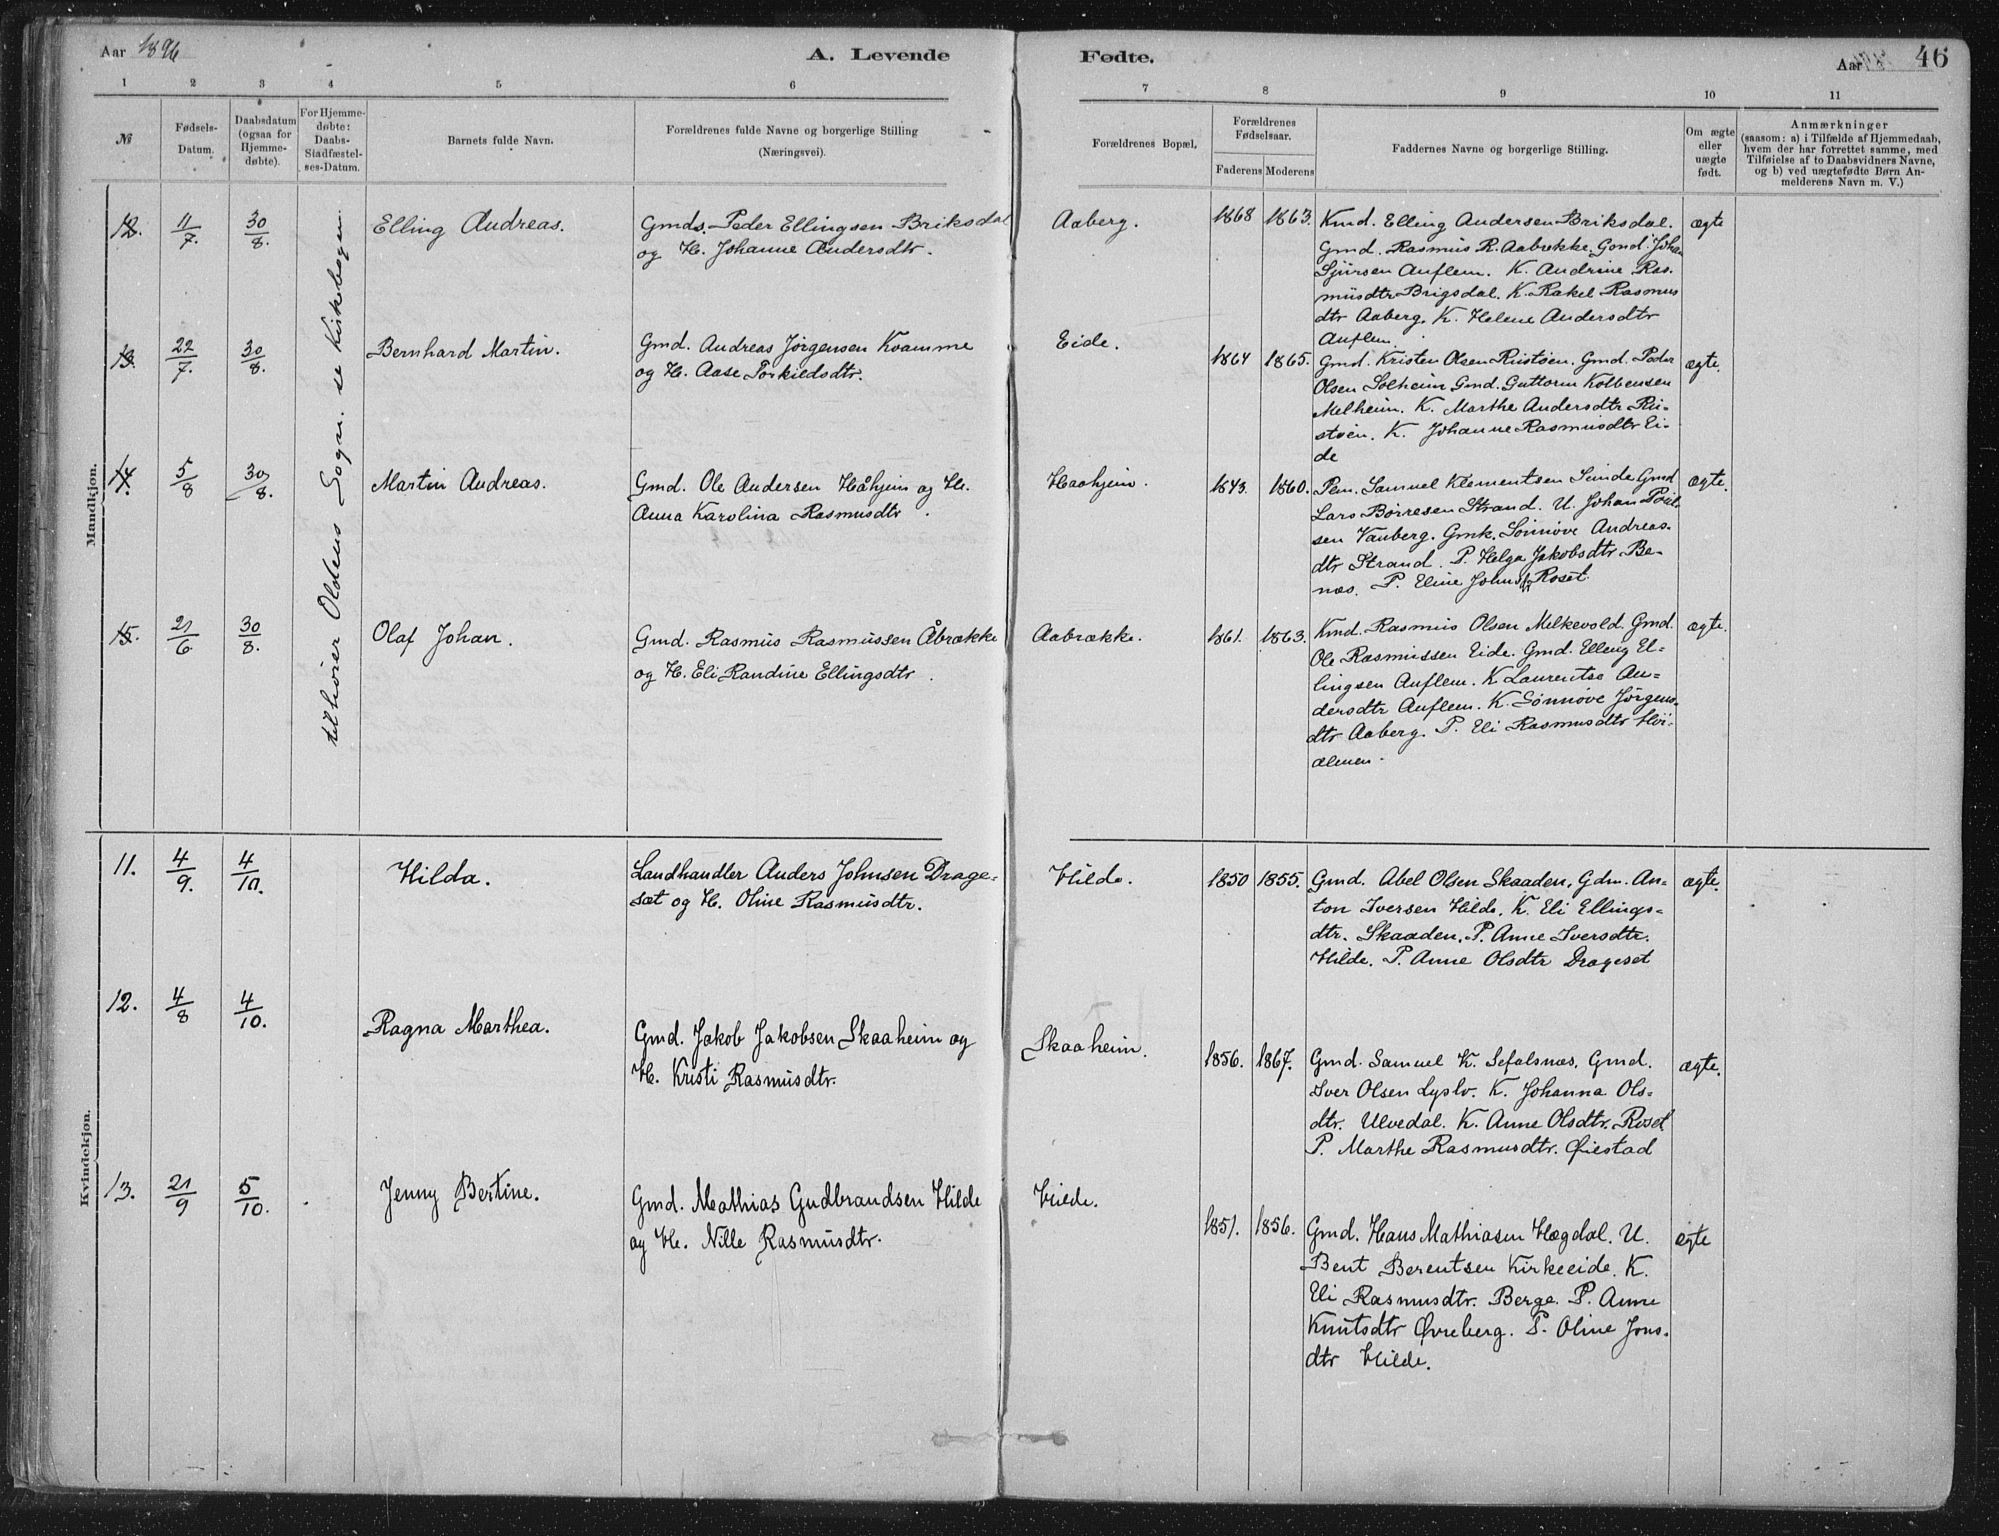 Aar 1896
A. Levende
Fødte.
Aar
46
1 2 3 4 5 6 7 8 9 10 11
№
Fødsels-
Datum.
Daabsdatum
(ogsaa for
Hjemme-
døbte).
For Hjemme-
døbte:
Daabs-
Stadfæstel-
ses-Datum.
Barnets fulde Navn.
Forældrenes fulde Navne og borgerlige Stilling
(Næringsvei).
Forældrenes Bopæl,
Forældrenes
Fødselsaar.
Faderens Moderens
Faddernes Navne og borgerlige Stilling.
Om ægte
eller
uægte
født.
Anmærkninger
(saasom: a) i Tilfælde af Hjemmedaab,
hvem der har forrettet samme, med
Tilføielse af to Daabsvidners Navne,
og b) ved uægtefødte Børn An-
melderens Navn m. V.)
Mandkjøn.
tilhører Oldens Sogn: se Kirkebogen.
12. 11/7. 30/8.
Elling Andreas.
Gmds. Peder Ellingsen Briksdal
og H. Johanne Andersdtr.
Aaberg.
1868 1863.
Kmd. Elling Andersen Briksdal.
Gmd. Rasmus R. Aabrekke. Gmd. Johan
Sjursen Auflem. K. Andrine Ras-
musdtr Brigsdal. K. Rakel Rasmus
dtr Aaberg. K. Helene Andersdtr
Auflem.
ægte
13. 22/7. 30/8.
Bernhard Martin.
Gmd. Andreas Jørgensen Kvamme
og H. Aase Torkildsdtr.
Eide.
1864 1865.
Gmd. Kristen Olsen Rustøen. Gmd. Peder
Olsen Solheim Gmd. Guttorm Kolbensen
Melheim. K. Marthe Andersdtr Ru-
støen. K. Johanne Rasmusdtr Ei-
de
ægte.
14. 5/8 30/8.
Martin Andreas.
Gmd. Ole Andersen Håhjem og H.
Anna Karolina Rasmusdtr.
Haahjem.
1843. 1860.
Pem. Samuel Klementsen Sunde Gmd
Lars Børresen Strand. U. Johan Poul-
sen Vanberg. Gmk. Sønnøve Andreas-
dtr Strand. P. Helga Jakobsdtr Be-
næs. P. Eline Johnsdtr Roset.
ægte.
15. 21/6 30/8.
Olaf Johan.
Gmd. Rasmus Rasmussen Åbrække
og H. Eli Randine Ellingsdtr.
Aabrække.
1861. 1863.
Kmd. Rasmus Olsen Melkevold. Gmd.
Ole Rasmussen Eide. Gmd. Elling El-
lingsen Auflem. K Laurentse An-
dersdtr Auflem. K. Sønnøve Jørgens-
dtr Aaberg. P. Eli Rasmusdtr Hvi-
almen.
ægte.
Kvindekjøn.
11. 4/9. 4/10.
Hilda.
Landhandler Anders Johnsen Drage-
sæt og H. Oline Rasmusdtr.
Hilde.
1850 1855.
Gmd. Abel Olsen Skaaden, Gdm. An-
ton Iversen Hilde, K. Eli Ellings-
dtr. Skaaden. P. Anne Iversdtr.
Hilde. P. Anne Olsdtr Drageset
ægte.
12. 4/8 4/10.
Ragna Marthea.
Gmd. Jakob Jakobsen Skaaheim og
H. Kristi Rasmusdtr.
Skaaheim.
1856. 1867.
Gmd. Samuel K. Sefalsnæs, Gmd.
Iver Olsen Lyslo. K. Johanna Ols-
dtr. Ulvedal. K. Anne Olsdtr. Roset
P. Marthe Rasmusdtr. Øiestad
ægte.
13. 21/9 5/10.
Jenny Bertine.
Gmd. Mathias Gudbrandsen Hilde
og H. Nille Rasmusdtr.
Hilde.
1851. 1856.
Gmd. Hans Mathiasen Hægdal. U.
Bent Berentsen Kirkeeide. K.
Eli Rasmusdtr. Berge. P. Anne
Knutsdtr Øvreberg. P. Oline Jons-
dtr Hilde.
ægte